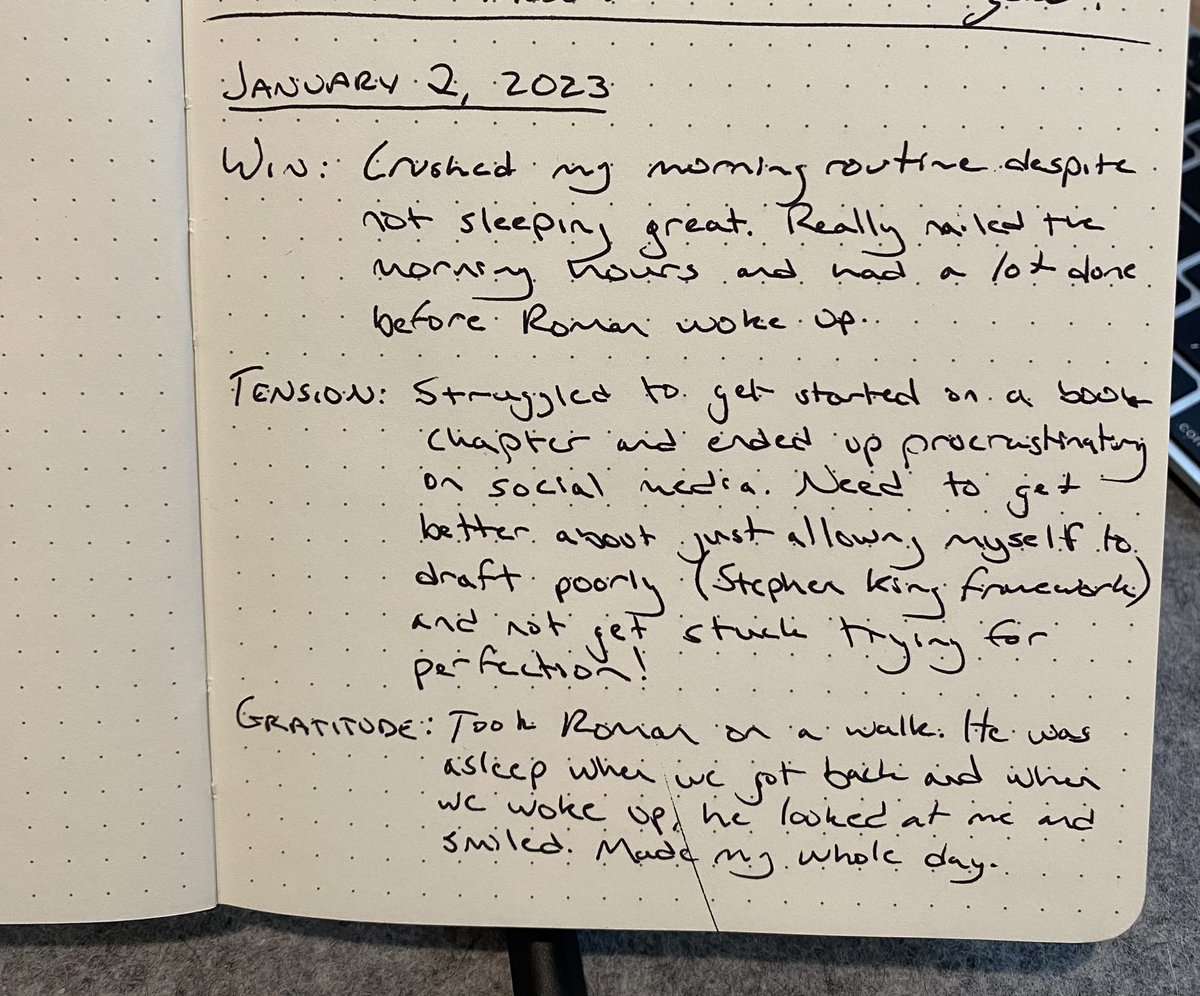 JANUARY 2, 2023
WIN: Crushed my morning routine despite
not sleeping great. Really nailed the
morning hours and had a lot done
before Roman woke up.
TENSION: Struggled to get started on a book
chapter and ended up procrastinating
on social media. Need to get
better about just allowing myself to
draft poorly (Stephen King framework)
and not get stuck trying for
perfection!
GRATITUDE: Took Roman on a walk. He was
asleep when we got back and when
we woke up, he looked at me and
smiled. Made my whole day.